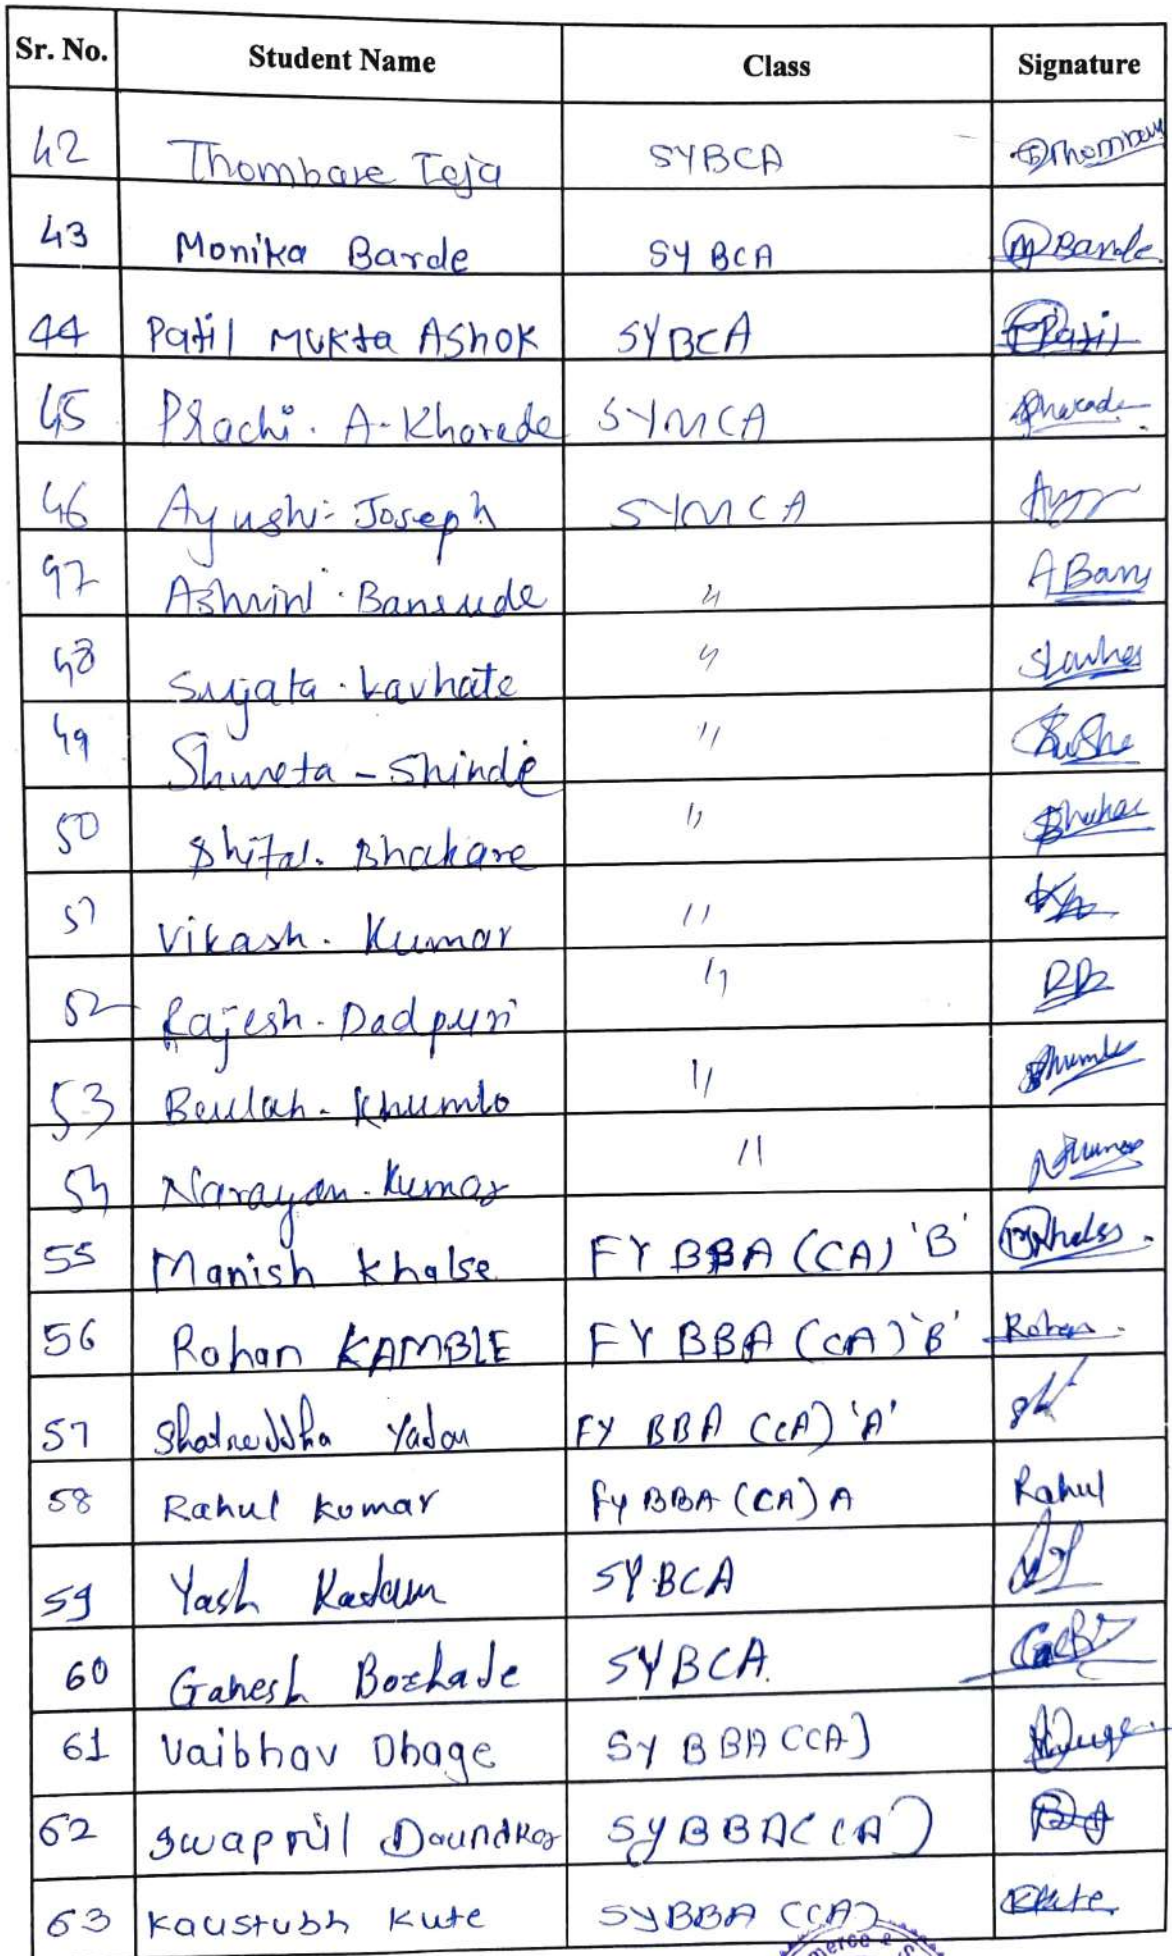 Sr. No. Student Name Class Signature
42 Thombare Teja SYBCA Thombare
43 Monika Barde SYBCA M Barde
44 Patil Mukta Ashok SYBCA Patil
45 Prachi. A. Kharade SYMCA
46 Ayushi Joseph SYMCA
47 Ashwini Bansude " A Bans
48 Sujata Kavhate "
49 Shweta - Shinde "
50 Shital. Bhakare "
51 Vikash. Kumar "
52 Rajesh - Dadpuri "
53 Beulah - Khumlo "
54 Narayan. Kumar "
55 Manish Khalse FY BBA (CA) 'B'
56 Rohan KAMBLE FY BBA (CA) 'B' Rohan
57 Yadav FY BBA (CA) 'A'
58 Rahul Kumar Fy BBA (CA) A Rahul
59 Yash Kadam SYBCA
60 Ganesh Borhade SYBCA.
61 Vaibhav Dhage SY BBA (CA)
62 Swapnil Daundkar SYBBA (CA)
63 Kaustubh Kute SYBBA (CA) KKute